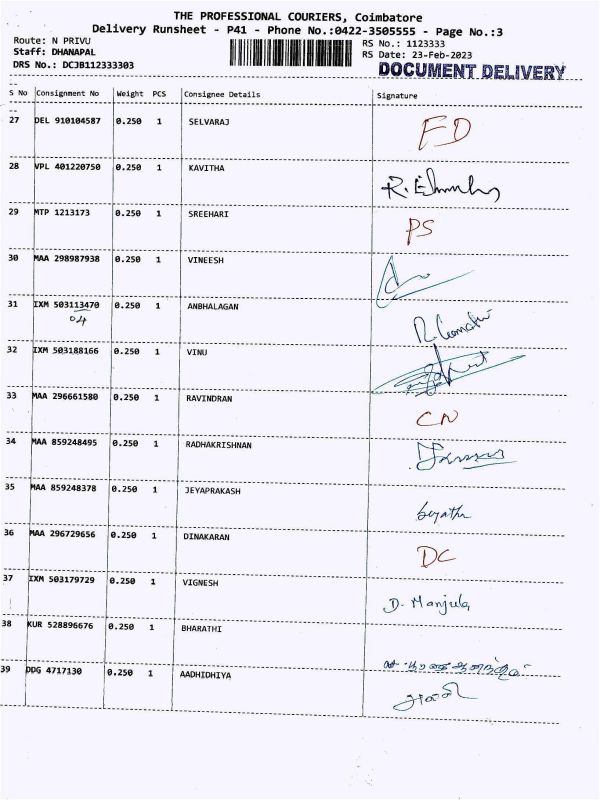 THE PROFESSIONAL COURIERS, Coimbatore
Delivery Runsheet - P41 - Phone No.:0422-3505555 - Page No.:3
Route: N PRIVU
RS No.: 1123333
Staff: DHANAPAL
RS Date: 23-Feb-2023
DRS No.: DCJB112333303
DOCUMENT DELIVERY
S No Consignment No Weight PCS Consignee Details Signature
27 DEL 910104587 0.250 1 SELVARAJ FD
28 VPL 401220750 0.250 1 KAVITHA
29 MTP 1213173 0.250 1 SREEHARI PS
30 MAA 298987938 0.250 1 VINEESH
31 IXM 503113470 0.250 1 ANBHALAGAN
04
32 IXM 503188166 0.250 1 VINU
33 MAA 296661580 0.250 1 RAVINDRAN CN
34 MAA 859248495 0.250 1 RADHAKRISHNAN
35 MAA 859248378 0.250 1 JEYAPRAKASH
36 MAA 296729656 0.250 1 DINAKARAN DC
37 IXM 503179729 0.250 1 VIGNESH D. Manjula
38 KUR 528896676 0.250 1 BHARATHI
39 DDG 4717130 0.250 1 AADHIDHIYA